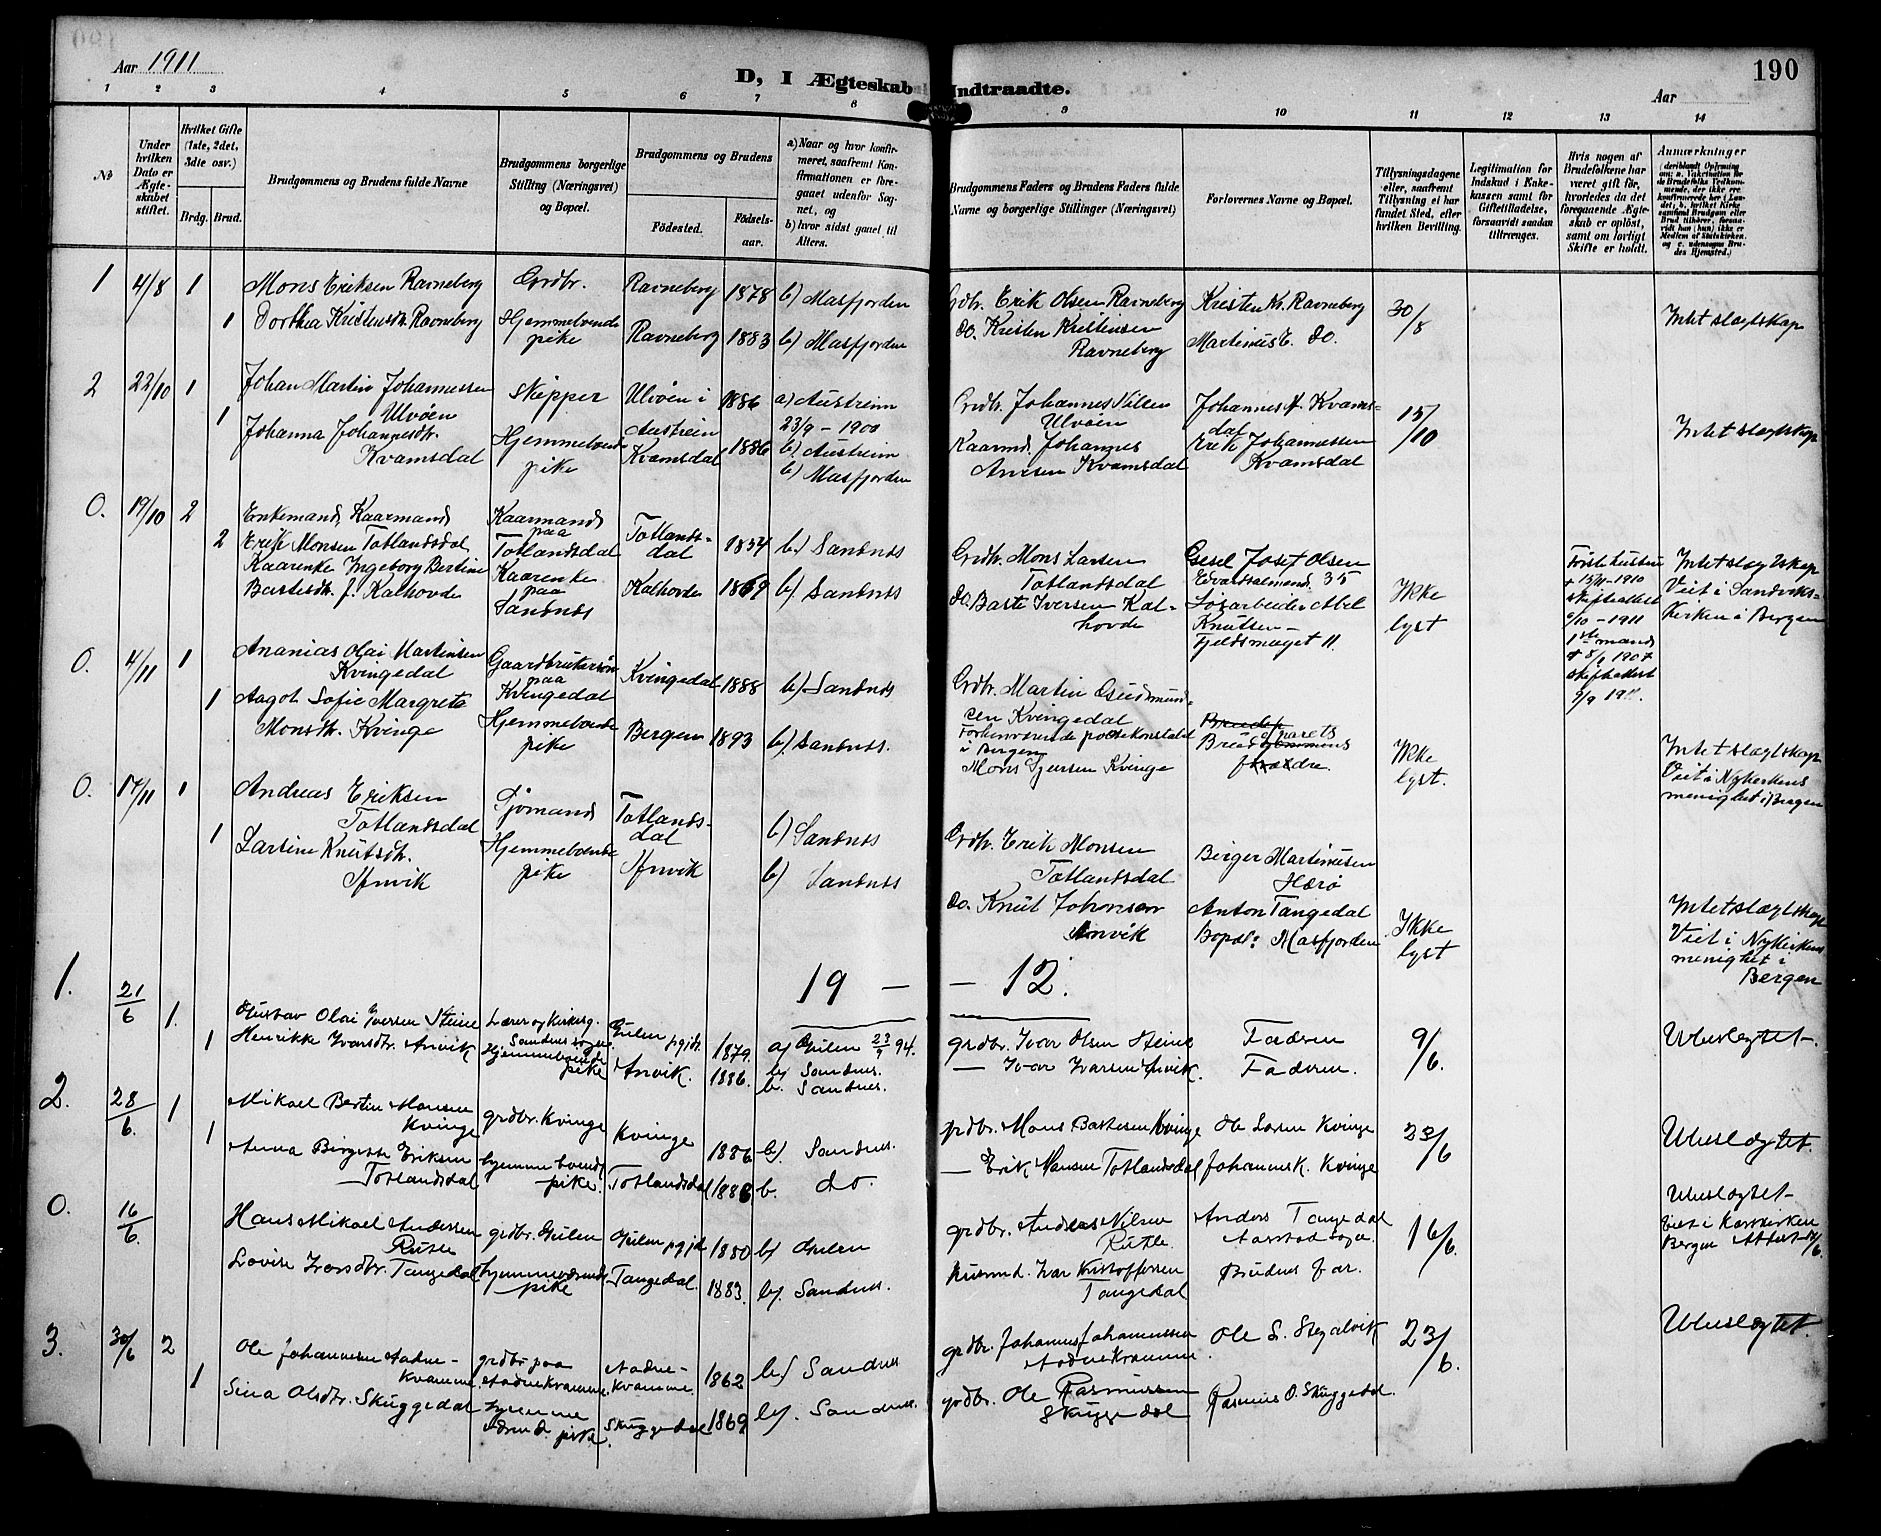 Aar 1911
D, I Ægteskab Indtraadte.
190
Aar
1 2 3 4 5 6 7 8 9 10 11 12 13 14
No
Under hvilken Dato er Ægteskabet stiftet.
Hvilket Gifte (1ste, 2det, 3die osv.)
Brdg. Brud.
Brudgommens og Brudens fulde Navne
Brudgommens borgerlige Stilling (Næringsvei) og Bopæl.
Brudgommens og Brudens
Fødested. Fødselsaar.
a) Naar og hvor konfirmeret, saafremt Konfirmationen er foregaaet udenfor Sognet, og
b) hvor sidst gaaet til Alters.
Brudgommens Faders og Brudens Faders fulde Navne og borgerlige Stillinger (Næringsvei)
Forlovernes Navne og Bopæl.
Tillysningsdagene eller, saafremt Tillysning ei har fundet Sted, efter hvilken Bevilling.
Legitimation for Indskud i Enkekassen samt for Giftetilladelse, forsaavidt saadan tiltrænges.
Hvis nogen af Brudefolkene har været gift før, hvorledes da det foregaaende Ægteskab er opløst, samt om lovligt Skifte er holdt.
Anmærkninger
1 4/8 1
Mons Eriksen Ravneberg
Grdbr.
Ravneberg 1878 b) Masfjorden
Grdbr. Erik Olsen Ravneberg
Kristen K. Ravneberg
30/8
Intet slagtskap
1 Dorthea Kristensdtr. Ravneberg
Hjemmeboende pike
Ravneberg 1883 b) Masfjorden
do. Kristen Kristensen Ravneberg
Martinus E. do.
2 22/10 1
Johan Martin Johannessen Ulvøen
Skipper
Ulvøen i Austrein 1886
a) Austreim 23/9 - 1900
b) Austreim
Grdbr. Johannes Nilsen Ulvøen
Johannes A. Kvamsdal
15/10
Intet slagtskap
1 Johanna Johannesdtr. Kvamsdal
Hjemmeboende pike
Kvamsdal 1886
b) Masfjorden
Kaarmd. Johannes Andsen Kvamsdal
Erik Johannessen Kvamsdal
0. 19/10 2
Enkemand, Kaarmand
Erik Monsen Totlandsdal
Kaarmand paa Totlandsdal
Totlandsdal 1854 b) Sandnes
Grdbr. Mons Larsen Totlandsdal
Josef Olsen
Edvardsalmend. 35
Ikke lyst
Intet slagtskap
Viet i Sandvikskirken i Bergen
2 Kaarenke Ingeborg Bertine Bastesdtr. f. Kalhovde
Kaarenke paa Sandnes
Kalhovde 1869 b) Sandnes
do. Baste Iversen Kalhovde
Løsarbeider Abel Knutsen -
Fjeldsmuget 11.
Første hustru
1ste mand
0. 4/11 1
Ananias Olai Martinsen Kvingedal
Gaardbrukersøn paa Kvingedal
Kvingedal 1888 b) Sandnes
Grdbr. Martin Gudmundsen Kvingedal
1 Aagot Sofie Margrete Monsdtr. Kvinge
Hjemmeboende pike
Bergen 1893 b) Sandnes.
Forhenværende politikonstabel i Bergen
Mons Iversen Kvinge
Brudeparets forældre
Ikke lyst.
Intet slagtskap
Viet i Nykirkens menighet i Bergen
0. 17/11 1
Andreas Eriksen Totlandsdal
Sjømand
Totlandsdal
b) Sandnes
Grdbr. Erik Monsen Totlandsdal
Birger Martinusen Herø
1 Lartine Knutsdtr. Anvik
Hjemmeboende pike
Anvik
b) Sandnes
do. Knut Johansen Anvik
Anton Tangedal
Bopæl: Masfjorden
Ikke lyst
Intet slagtskap
Viet i Nykirkens menighet i Bergen
19 - - 12.
1. 21/6 1.
Gustav Olai Iversen Steine
Lærer og Kirkesg. Sandnes sogn
Gulen pgjd. 1879.
a) Gulen 23/9 94.
b) Sandnes.
grdbr. Ivar Olsen Steine
Faderen
9/6.
Ubeslegtet.
1 Henrikke Ivarsdtr. Anvik
Hjemmeboende pike
Anvik. 1886.
b. Sandnes.
— Ivar Ivarsen Anvik.
Faderen.
2. 28/6. 1
Mikael Bertin Monsen Kvinge
grdbr. Kvinge
Kvinge 1886 b). Sandnes.
grdbr. Mons Bastesen Kvinge
Ole Larsen Kvinge
23/6
Ubeslegtet.
1 Anna Birgitte Eriksen Totlandsdal
hjemmeboende pike.
Totlandsdal 1888 b. do.
— Erik Monsen Totlandsdal
Johannes K. Kvinge
0. 16/6.
Hans Mikael Andersen Rutle
grdbr. Gulen
Gulen pgjd. 1880 b) Gulen
grdbr. Anders Nilsen Rutle.
Anders Tangedal
Aarstad sogn.
16/6.
Ubeslegtet
viet i Korskirken Bergen
Lovise Ivarsdtr. Tangedal
hjemmeværende pike
Tangedal. 1883. b). Sandnes.
Husmd. Ivar Kristoffersen Tangedal
Brudens far.
3. 30/6 2
Ole Johannesen Aadnekvamme.
grdbr. paa Aadnekvamme.
Aadnekvamme. 1862 b) Sandnes
grdbr. Johannes Johannessen Aadnekvamme
Ole S. Stegalvik
23/6.
Ubeslegtet.
1 Sina Olsdtr. Skuggedal
hjemmeværend. pike.
Skuggedal 1869 b). Sandnes.
grdbr. Ole Rasmussen Skuggedal
Rasmus O. Skuggedal.